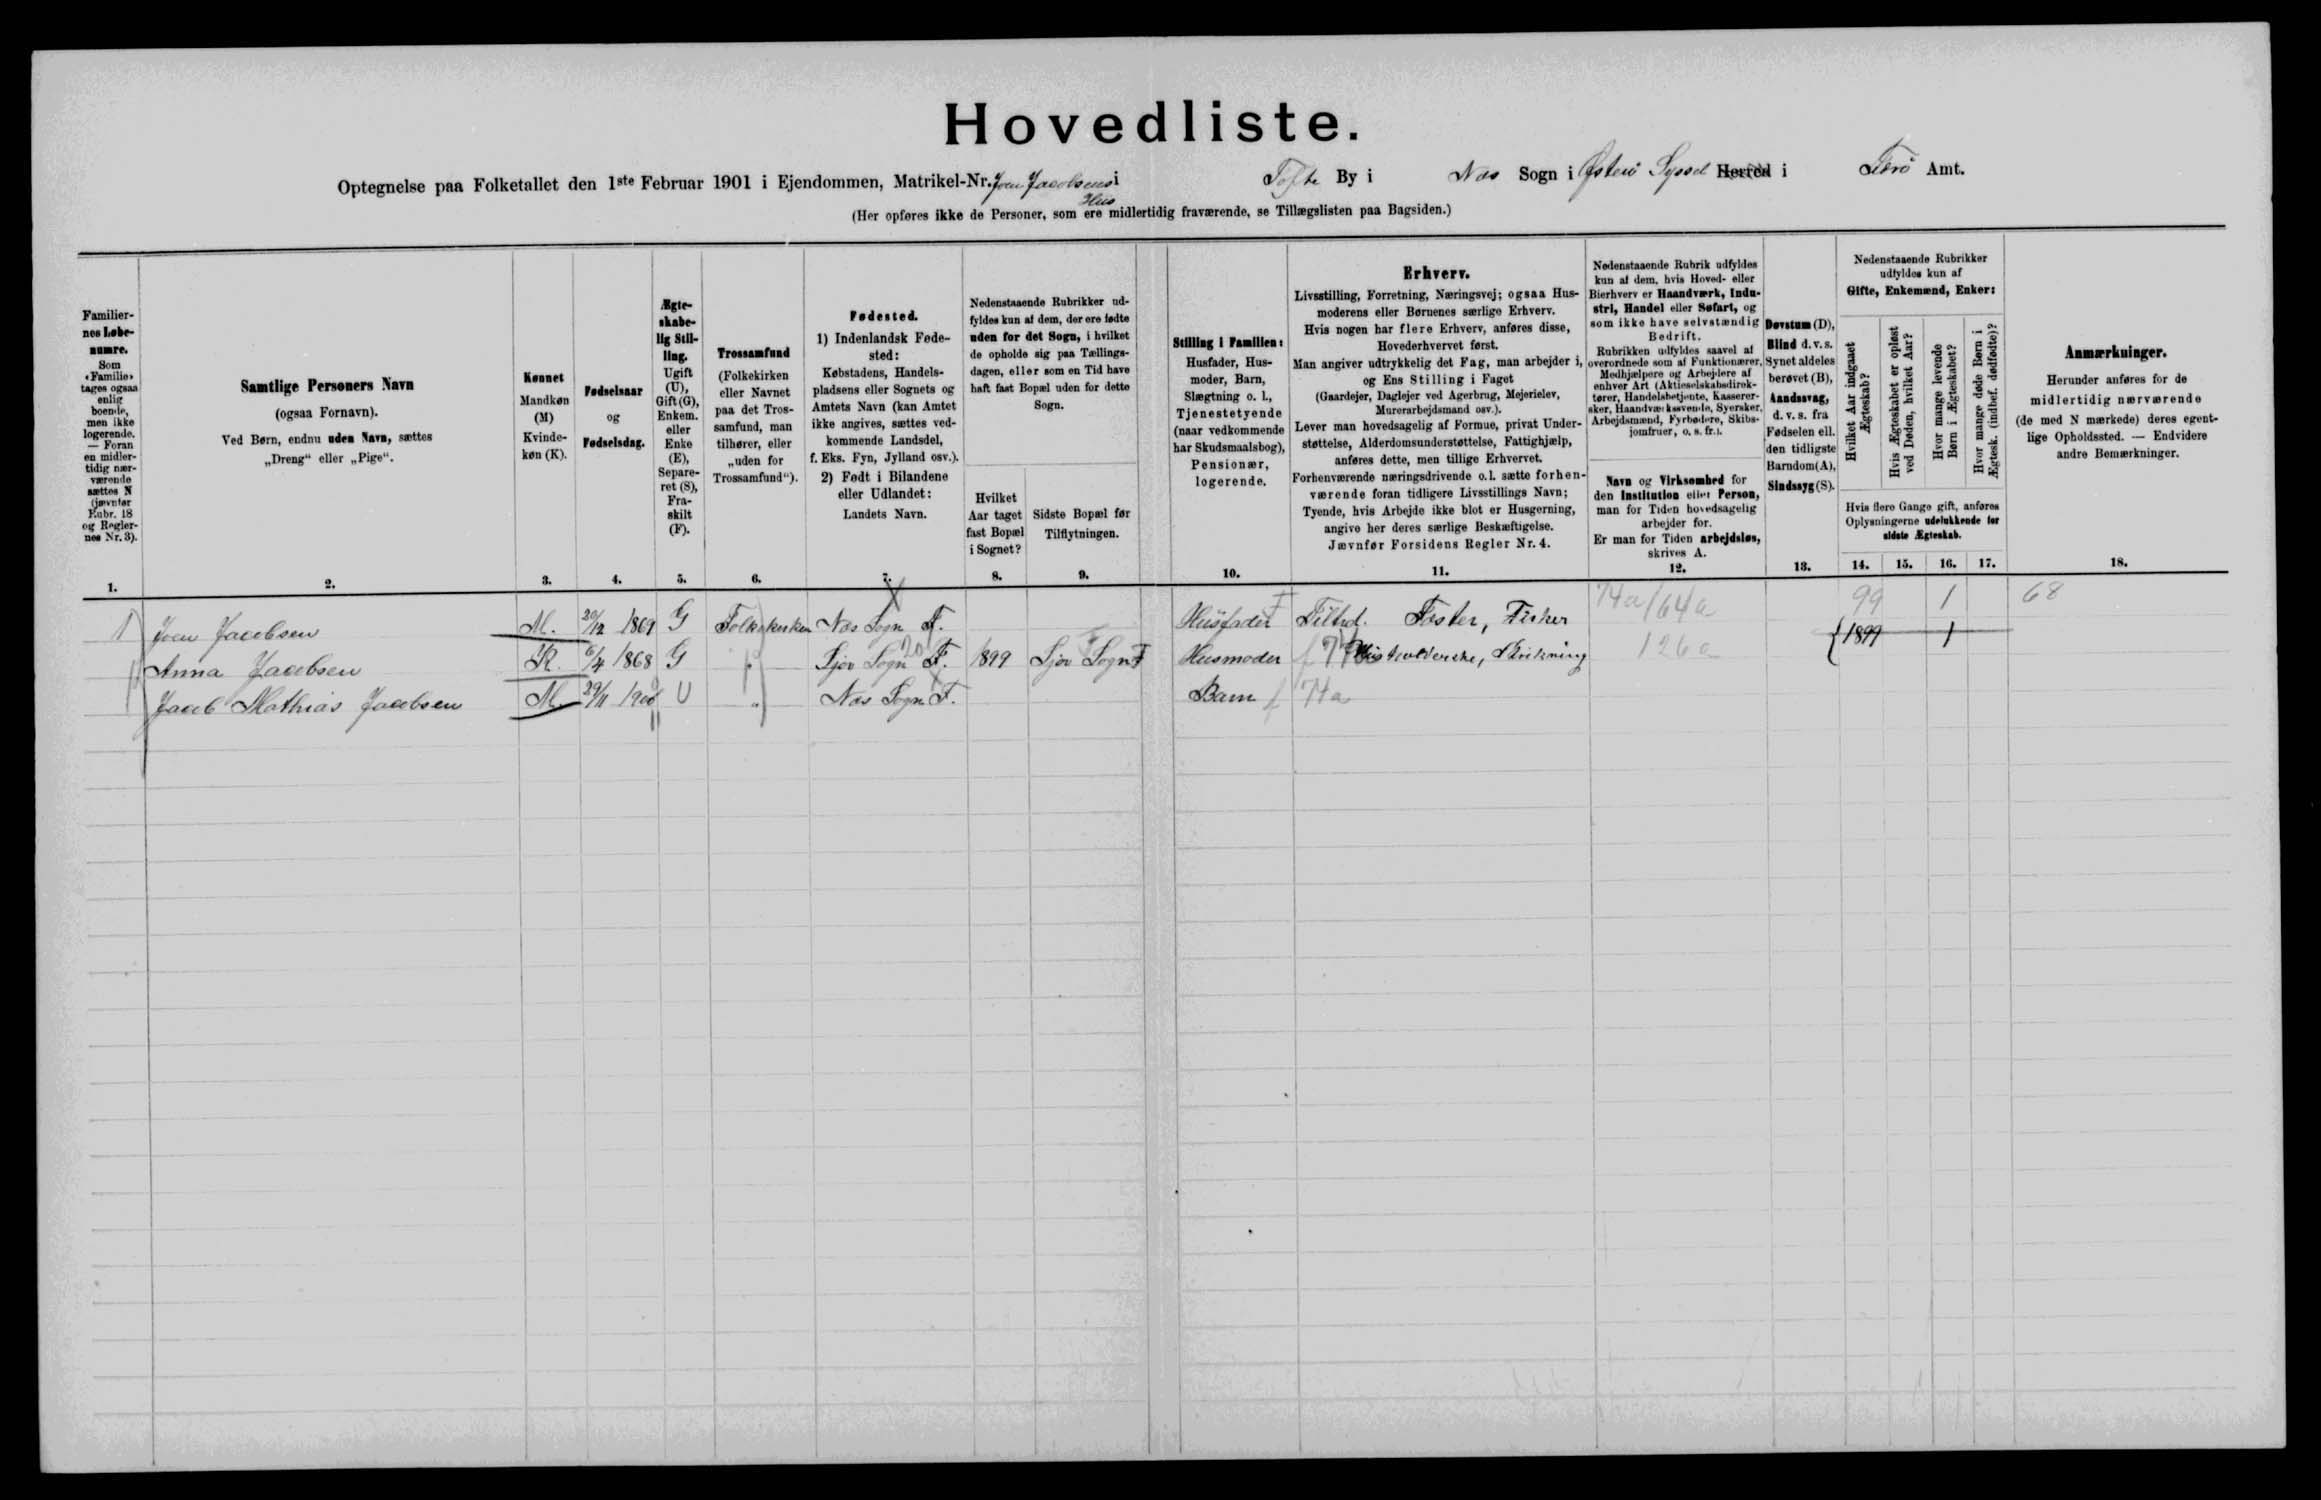 Hovedliste.
Optegnelse paa Folketallet den 1ste Februar 1901 i Ejendommen, Matrikel-Nr. Joen Jacobsens Hus i Tofte By i Næs Sogn i Østerø Syssel Herred i Færø Amt.
(Her opføres ikke de Personer, som ere midlertidig fraværende, se Tillægslisten paa Bagsiden.)
Familiernes Løbenumre.
Som «Familie» tages ogsaa enlig boende, men ikke logerende. — Foran en midlertidig nærværende sættes N (jævnfør Rubr. 18 og Reglernes Nr. 3).
1.
Samtlige Personers Navn
(ogsaa Fornavn).
Ved Børn, endnu uden Navn, sættes
„Dreng“ eller „Pige“.
2.
Kønnet
Mandkøn
(M)
Kvinde-
køn (K).
3.
Fødselsaar
og
Fødselsdag.
4.
Ægte-
skabe-
lig Stil-
ling.
Ugift
(U),
Gift (G),
Enkem.
eller
Enke
(E),
Separe-
ret (S),
Fra-
skilt
(F).
5.
Trossamfund
(Folkekirken
eller Navnet
paa det Tros-
samfund, man
tilhører, eller
„uden for
Trossamfund“).
6.
Fødested.
1) IndenlandskFøde-
sted:
Købstadens, Handels-
pladsens eller Sognets og
Amtets Navn (kan Amtet
ikke angives, sættes ved-
kommende Landsdel,
f. Eks. Fyn, Jylland osv.).
2) Født i Bilandene
eller Udlandet:
Landets Navn.
7.
Nedenstaaende Rubrikker ud-
fyldes kun af dem, der ere fødte
uden for det Sogn, i hvilket
de opholde sig paa Tællings-
dagen, eller som en Tid have
haft fast Bopæl uden for dette
Sogn.
Hvilket
Aar taget
fast Bopæl
i Sognet?
8.
Sidste Bopæl før
Tilflytningen.
9.
Stilling i Familien:
Husfader, Hus-
moder, Barn,
Slægtning o. l.,
Tjenestetyende
(naar vedkommende
har Skudsmaalsbog),
Pensionær,
logerende.
10.
Erhverv.
Livsstilling, Forretning, Næringsvej; ogsaa Hus-
moderens eller Børnenes særlige Erhverv.
Hvis nogen har flere Erhverv, anføres disse,
Hovederhvervet først.
Man angiver udtrykkelig det Fag, man arbejder i,
og Ens Stilling i Faget
(Gaardejer, Daglejer ved Agerbrug, Mejerielev,
Murerarbejdsmand osv.).
Lever man hovedsagelig af Formue, privat Under-
støttelse, Alderdomsunderstøttelse, Fattighjælp,
anføres dette, men tillige Erhvervet.
Forhenværende næringsdrivende o. l. sætte forhen-
værende foran tidligere Livsstillings Navn;
Tyende, hvis Arbejde ikke blot er Husgerning,
angive her deres særlige Beskæftigelse.
Jævnfør Forsidens Regler Nr. 4.
11.
Nedenstaaende Rubrik udfyldes
kun af dem, hvis Hoved- eller
Bierhverv er Haandværk, Indu-
stri, Handel eller Søfart, og
som ikke have selvstændig
Bedrift.
Rubrikken udfyldes saavel af
overordnede som af Funktionærer,
Medhjælpere og Arbejdere af
enhver Art (Aktieselskabsdirek-
tører, Handelsbetjente, Kasserer-
sker, Haandværkssvende, Syersker,
Arbejdsmænd, Fyrbødere, Skibs-
jomfruer, o. s. fr.).
Navn og Virksomhed for
den Institution eller Person,
man for Tiden hovedsagelig
arbejder for.
Er man for Tiden arbejdsløs,
skrives A.
12.
Døvstum (D),
Blind d. v. s.
Synet aldeles
berøvet (B),
Aandssvag,
d. v. s. fra
Fødselen ell.
den tidligste
Barndom (A),
Sindssyg (S).
13.
Nedenstaaende Rubrikker
udfyldes kun af
Gifte, Enkemænd, Enker:
Hvilket Aar indgaaet Ægteskab?
Hvis Ægteskabet er opløst ved Døden, hvilket Aar?
Hvor mange levende Børn i Ægteskabet?
Hvor mange døde Børn i Ægtesk. (indbef. dødfødte)?
Hvis flere Gange gift, anføres
Oplysningerne udelukkende for
sidste Ægteskab.
14. 15. 16. 17.
Anmærkninger.
Herunder anføres for de
midlertidig nærværende
(de med N mærkede) deres egent-
lige Opholdssted. — Endvidere
andre Bemærkninger.
18.
1 Joen Jacobsen M. 20/12 1869 G Folkekirken Næs Sogn F. Husfader Fæster, Fisker 74a/64a 99 1 68
Anna Jacobsen K. 6/4 1868 G „ Sjov Sogn F. 1899 Sjov Sogn F Husmoder 126a 1899 1
Jacob Mathias Jacobsen M. 29/11 1900 U „ Næs Sogn F. Barn f 74a